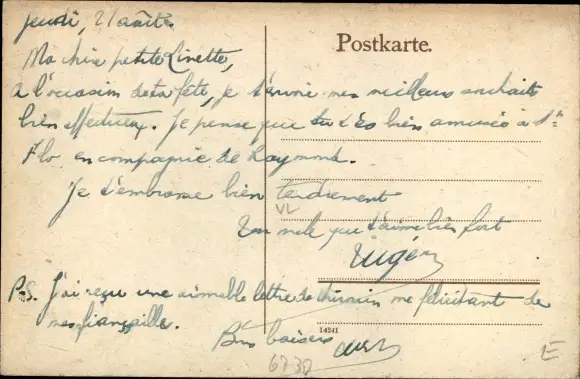 Jeudi, 21 août.
Postkarte.
Ma chère petite Linette,
à l'occasion de ta fête, je t'envoie mes meilleurs souhaits
bien affectueux. Je pense que tu t'es bien amusée à
Flo en compagnie de Raymond.
Je t'embrasse bien tendrement
VL
Ton qui t'aime bien fort
P.S. J'ai reçu une aimable lettre de me félicitant de
mes fiançailles.
14241
Bons baisers
6730
E